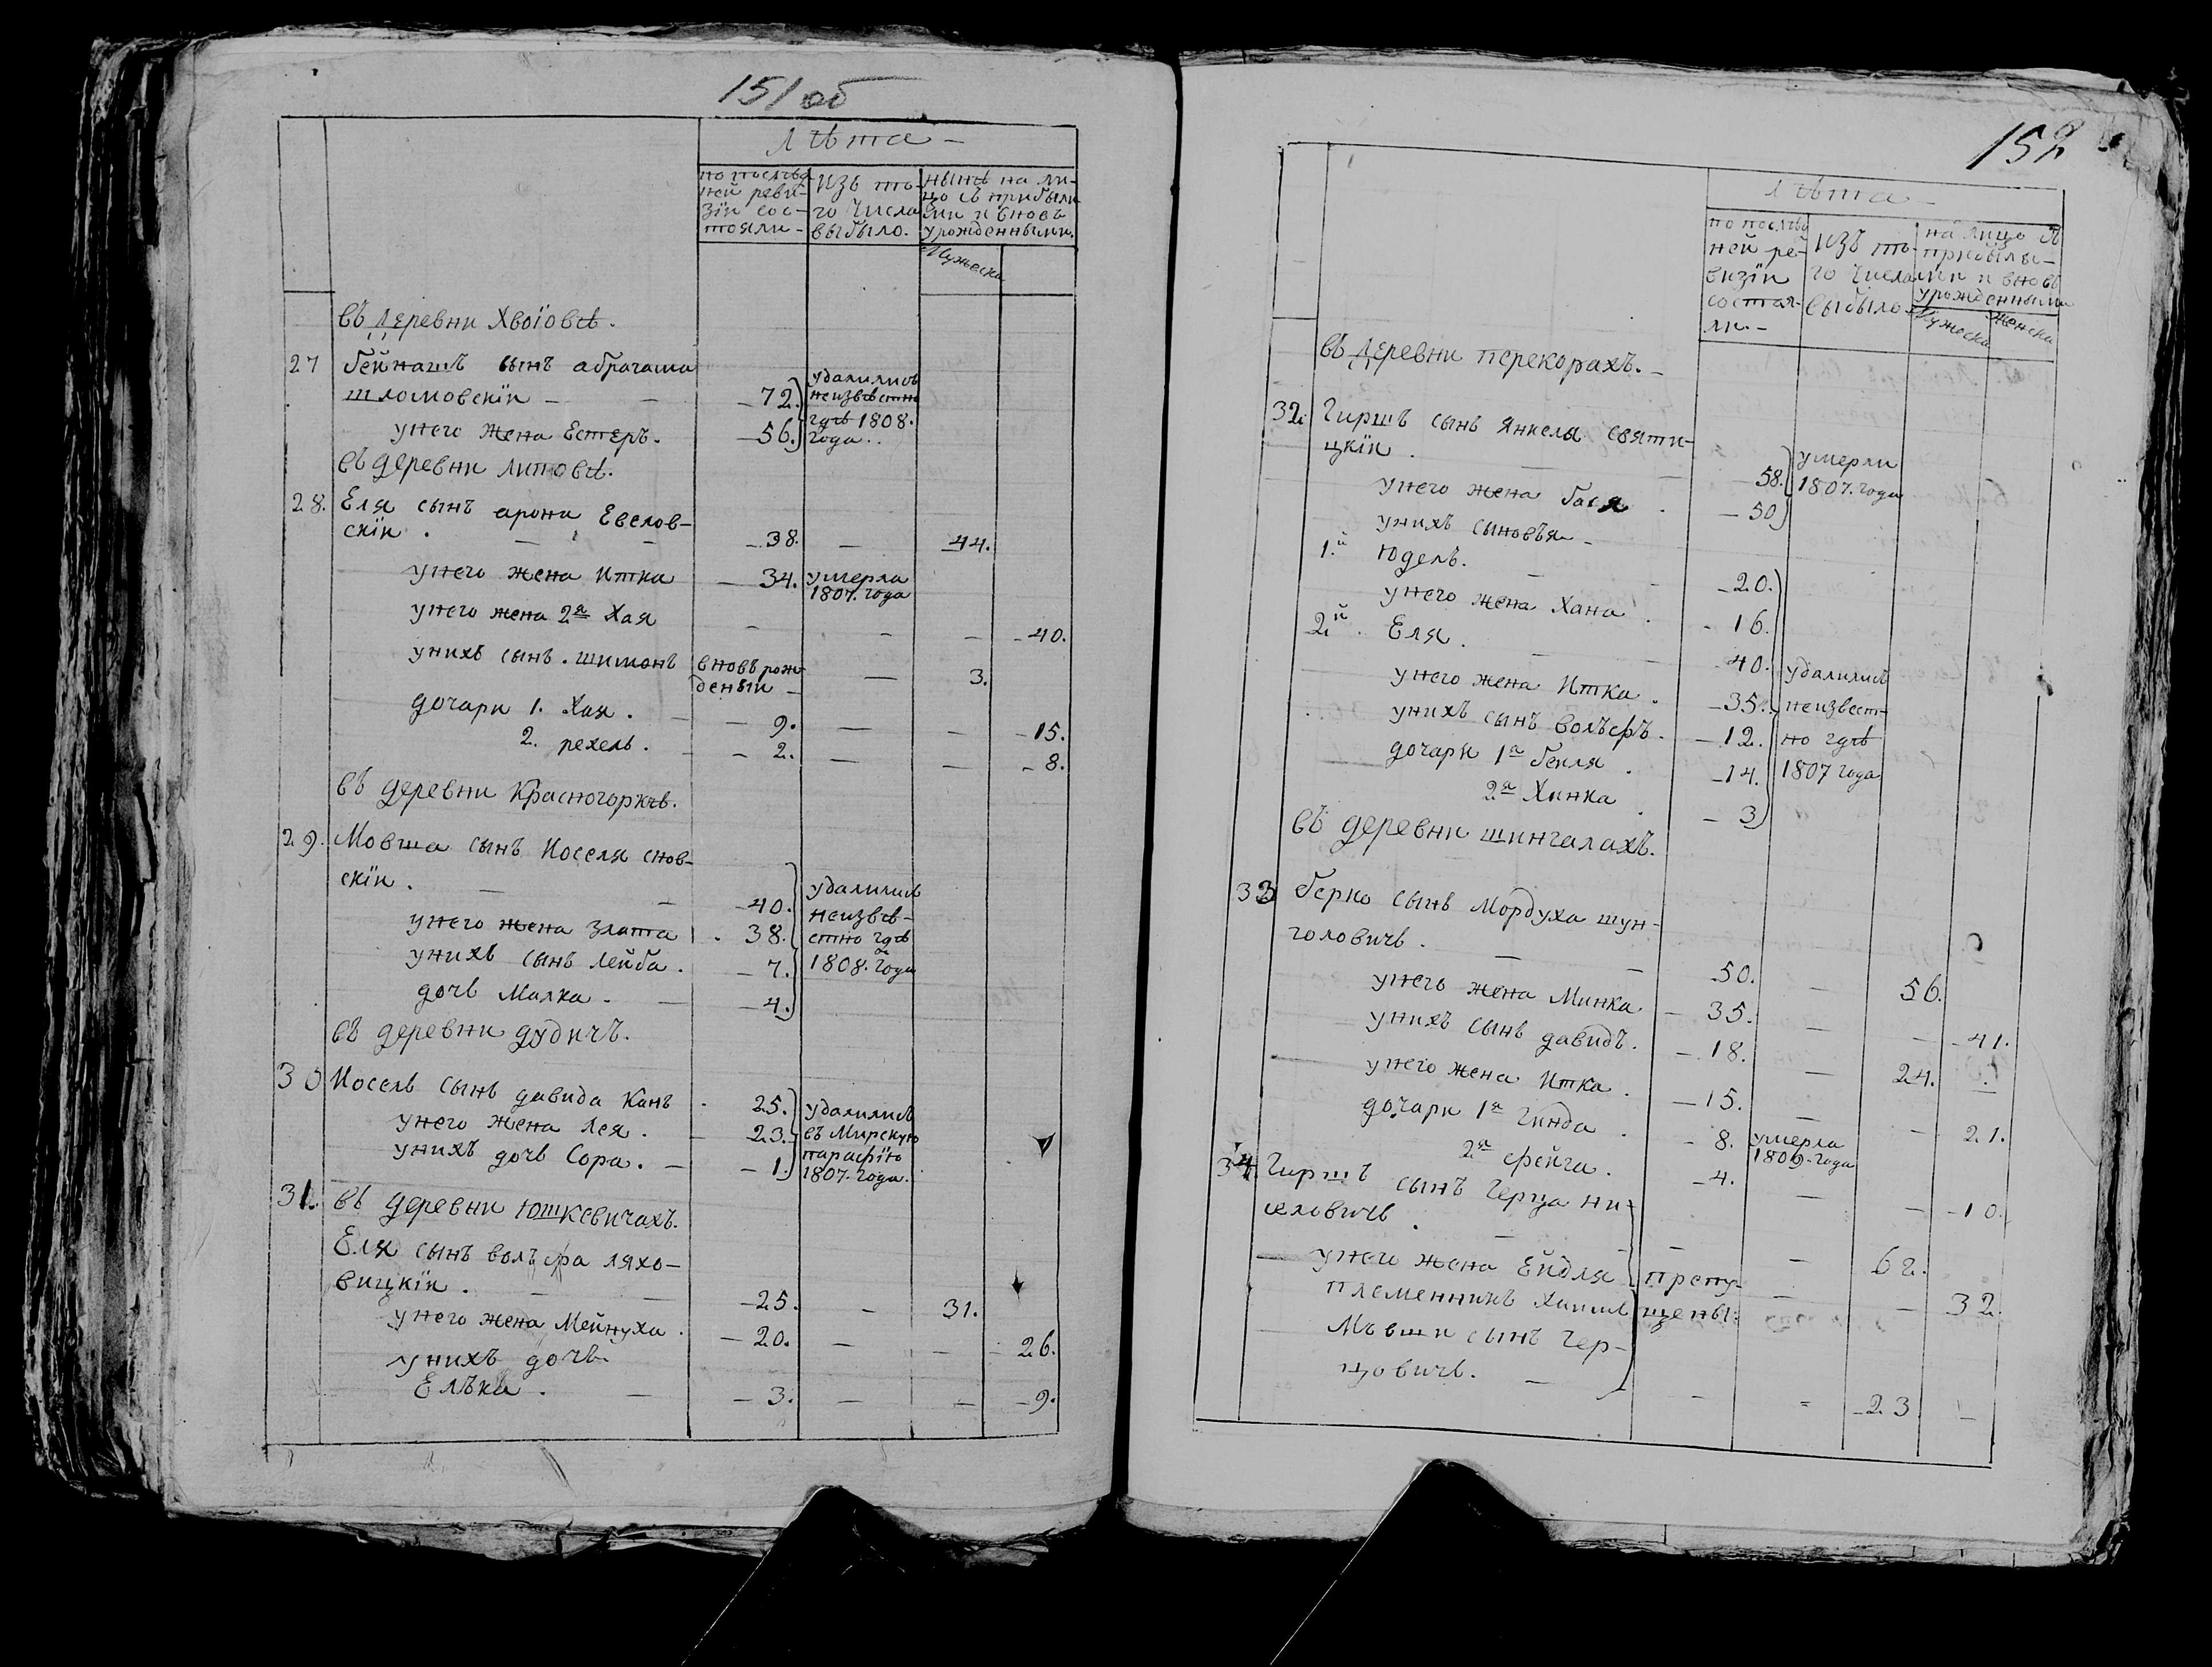 151 об
Лѣта -
по послѣд-
ней реви-
зіи сос-
тояли -
изъ то-
го числа
выбыло.
нынѣ на ли-
цо съ прибылы-
ми и вновь
урожденными.
Мужеска
въ деревни Хвоіовѣ.
27 Гейнашъ сынъ абрагама
шломовскіи - - - 72. удалились
неизвѣстно
унего жена Естеръ. - 56. гдѣ 1808.
года..
въ деревни липовѣ.
28. Еля сынъ арона Евелов-
скіи . - - - 38. - 44.
унего жена Итка - 34. умерла
1807. года
унего жена 2я Хая - - - - 40.
унихъ сынъ. шимонъ вновь рож-
деныи - - 3.
дочари 1. Хая. - - 9. - - - 15.
2. рехель. - - 2. - - - 8.
въ деревни Красногоркѣ.
29. Мовша сынъ Иоселя снов-
скіи . - - - 40. удалились
унего жена злата . 38. неизвѣ-
стно гдѣ
унихъ сынъ лейба. - 7. 1808. года
дочь Малка. - - 4.
въ деревни дудичъ.
30 Иосель сынъ давида Канъ - 25. удалились
унего жена лея. - 23. въ Мирскую
унихъ дочь Сора. - - 1. парафію
1807. года.
31. въ деревни Юшкевичахъ.
Еля сынъ вольфа ляхо-
вицкіи. - - - 25. - 31.
унего жена Мейнуха. - 20. - - - 26.
унихъ дочь
Елька. - - 3. - - - 9.
152
Лѣта -
по послѣд
ней ре-
визіи
состоя-
ли. -
изъ то-
го числа
выбыло
на лицо съ
прибылы-
ми и вновь
урожденными
Мужеска
Женска
въ деревни перекорахъ. -
32. Гиршъ сынъ Янкеля святи-
цкіи . - - - 58. умерли
1807. года
унего жена Гася . - 50
унихъ сыновья -
1.й Юдель. - - - 20.
унего жена Хана . - 16.
2.й Еля. - - 40. удалились
унего жена Итка . - 35. неизвест-
унихъ сынъ вольфъ. - 12. но гдѣ
дочари 1я Геиля . - 14. 1807 года
2я Хинка . - 3
въ деревни шингалахъ.
33 Берко сынъ Мордуха шун-
головичъ. - - 50. - 56.
унего жена Минка - 35. - - - 41.
унихъ сынъ давидъ. - 18. - 24.
унего жена Итка . - 15. - - 21.
дочари 1я Гинда . - 8. умерла
1809. года
2я фейга. - 4. - - - 10.
34. Гиршъ сынъ Герца ни-
селовичъ . - - - - 62.
унего жена Ейдля пропу- - - 32.
племенникъ щены.
Мовши сынъ Гер-
цовичъ. - - - 23 -